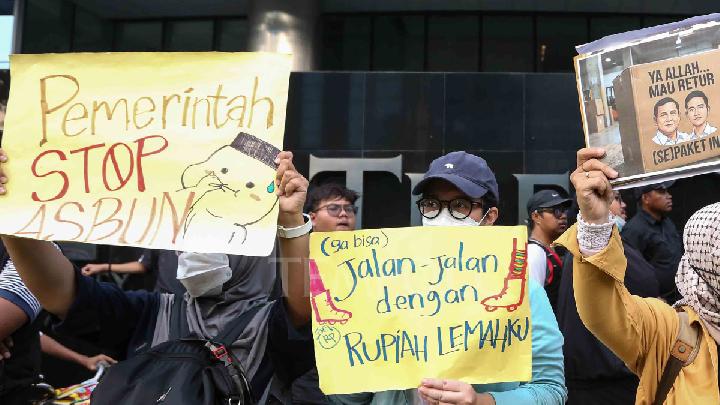 Pemerintah
STOP
ASBUN
(ga bisa)
Jalan-jalan
dengan
RUPIAH LEMAHKU
YA ALLAH...
MAU RETUR
(SE)PAKET IN